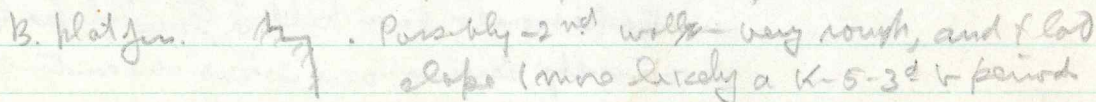 B. platfm. . Possibly 2nd walls very rough, and
slope (more likely a K-5-3d period